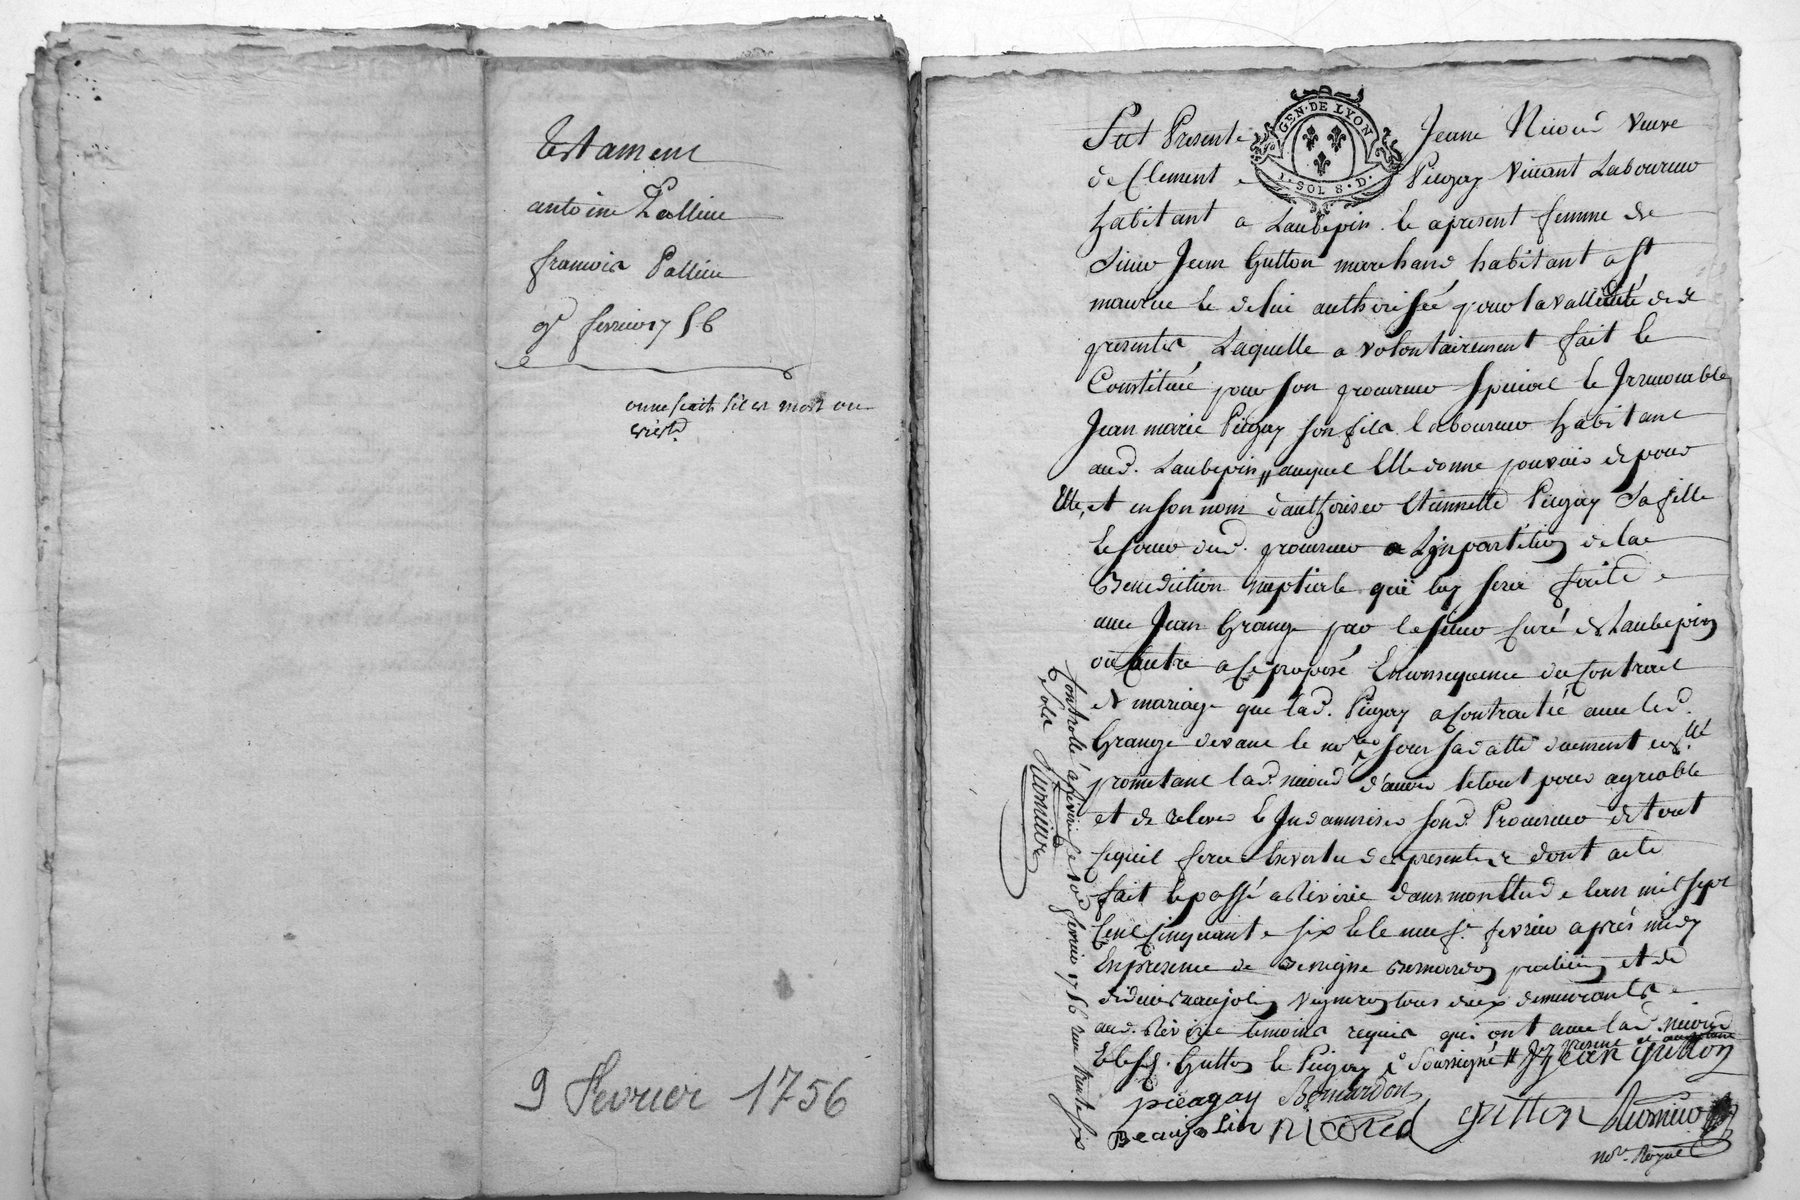 testament
antoine
françois
9e fevrier 1756
on ne sçait s'il est mort ou
9 fevrier 1756
Fut Presente Jeanne Nicoud veuve
GEN·DE LYON
1·SOL 8·D·
de Clement Piegay vivant Laboureur
habitant a Laubepin & apresent femme de
sieur Jean Gutton marchand habitant a St
maurice & de lui authorisée pour la vallidité des
presentes Laquelle a volontairement fait &
Constitué pour son procureur special & Irrevocable
Jean marie Piegay son fils laboureur habitant
aud. Laubepin, auquel Elle donne pouvoir de pour
Elle, et en son nom d'authoriser Etiennette Piegay sa fille
& soeur dud. procureur a L'inpartition de la
Benediction nuptiale qui luy sera faite
avec Jean Grange par le sieur Curé de Laubepin
ou autre a ce proposé En consequence du Contrat
de mariage que lad. Piegay a Contracté avec led.
Grange devant le nore sous sa datte duement
prometant lad. nicoud d'avoir le tout pour agreable
et de relever & Indamniser sond. Procureur de tout
ce quil fera En vertu des presentes dont acte
fait & passé a Riverie dans mon Etude l'an mil sept
Cent Cinquante six & le neuf. fevrier après midy
En presence de Benigne Bernardon praticien et de
Beaujolin vigneron tous deux demeurants
aud. Riverie temoins requis qui ont avec lad. nicoud
& led. Gutton & Piegay Soussigné Jean Gutton
piegay Bernardon
Beaujolin nicoud gutton
nore Royal
Controllé a Riverie le 10e fevrier 1756 reçu
Sols